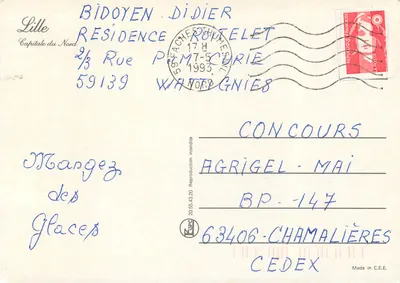 Lille
Capitale du Nord
BIDOYEN DIDIER
RESIDENCE ROITELET
2/3 Rue P.M. CURIE
59139 WATTIGNIES
17 H
7-5
1993
NORD
CONCOURS
AGRIGEL - MAI
BP - 147
63406 - CHAMALIÈRES
CEDEX
Mangez
des
glaces
20.55.43.20 Reproduction interdite
Made in C.E.E.